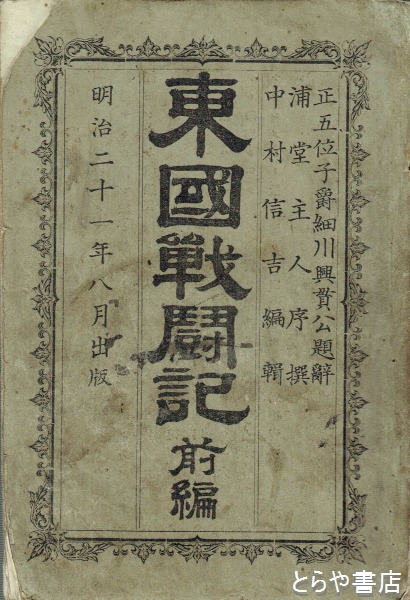 正五位子爵細川興貫公題辭
浦堂主人序撰
中村信吉編輯
東國戰鬪記
前編
明治二十一年八月出版
とらや書店